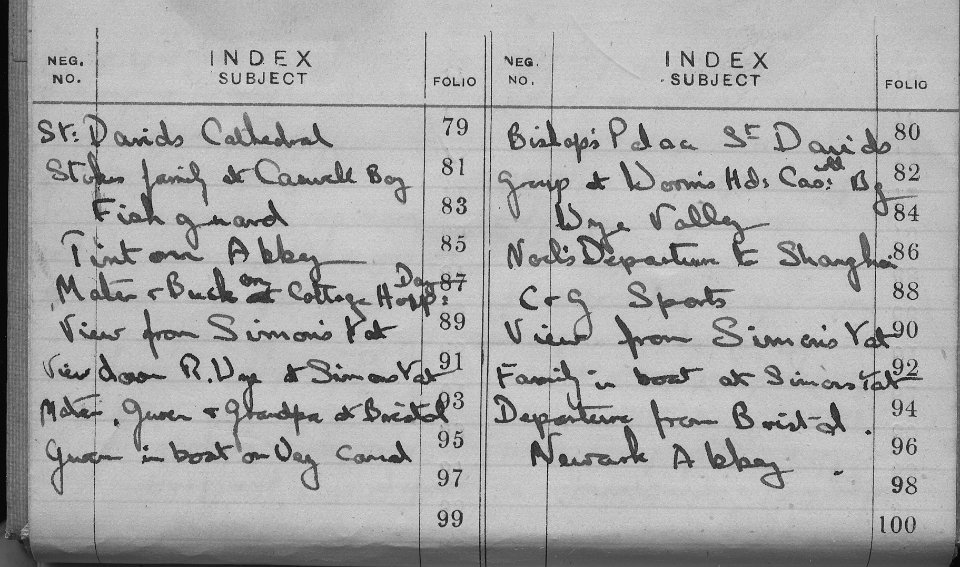 NEG. NO. INDEX SUBJECT FOLIO
St: Davids Cathedral 79
Stokes family at Caswell Bay 81
Fishguard 83
Tintern Abbey 85
Mater & Buck on Cottage Hosp: Day 87
View from Simon's Yat 89
View down R. Wye at Simons Yat 91
Mater, Gwen & Grandpa at Bristol 93
Gwen in boat on Wey Canal 95
97
99
NEG. NO. INDEX SUBJECT FOLIO
Bishop's Palace St Davids 80
Group at Worm's Hd: Bay 82
Wye Valley 84
Noel's Departure to Shanghai 86
C & G Sports 88
View from Simon's Yat 90
Family in boat at Simons Yat 92
Departure from Bristol. 94
Newark Abbey. 96
98
100